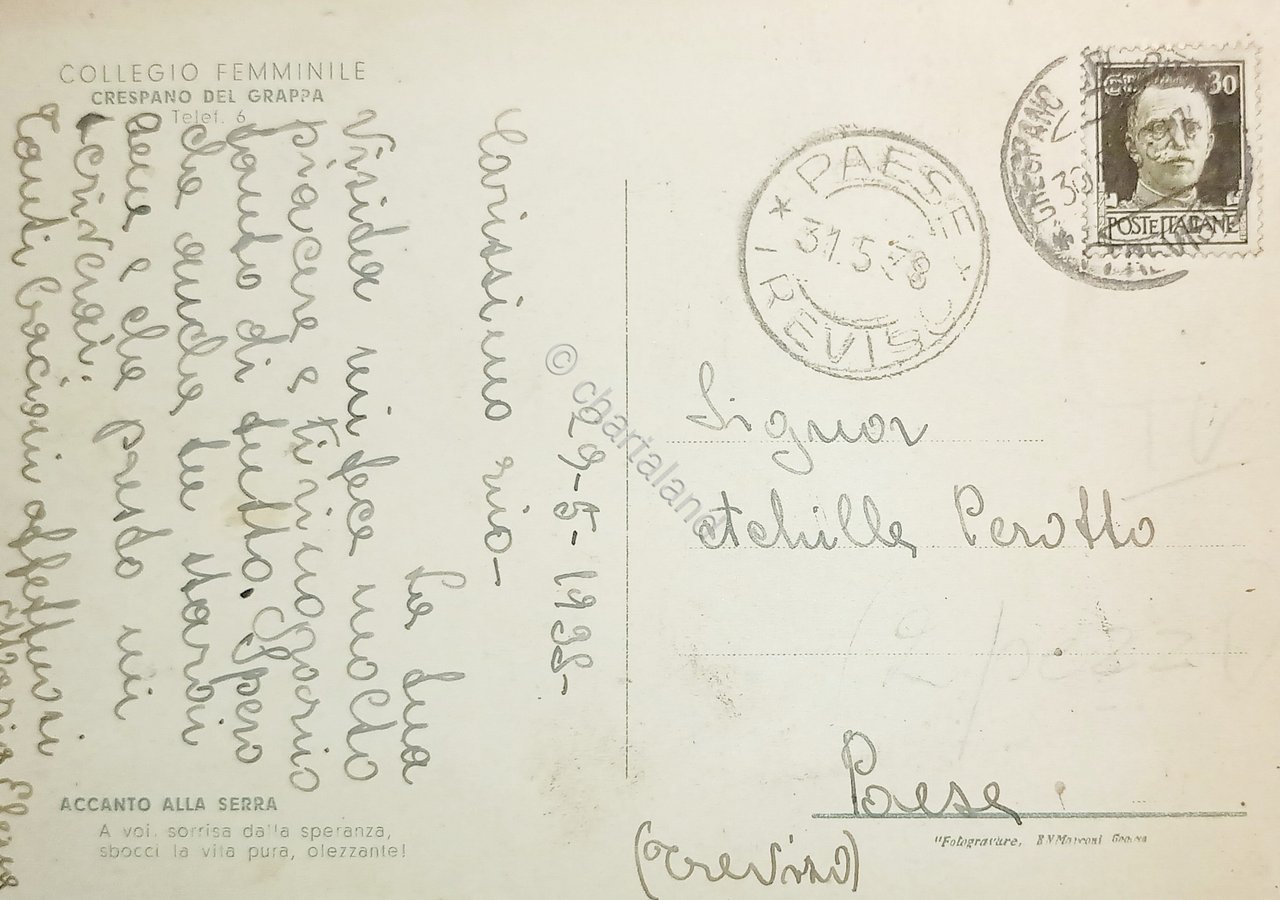 COLLEGIO FEMMINILE
CRESPANO DEL GRAPPA
Telef. 6
29-5-1938-
Carissimo zio-
La tua
visita mi fece molto
piacere e ti ringrazio
tanto di tutto. Spero
che anche tu starai
bene e che presto mi
scriverai.
Tanti bacioni affettuosi
Maria Elena
ACCANTO ALLA SERRA
A voi, sorrisa dalla speranza,
sbocci la vita pura, olezzante!
PAESE
31.5.38
TREVISO
CRESPANO
30
30
POSTE ITALIANE
Signor
Achille Perotto
Paese
(Treviso)
"Fotogravure, B.N Marconi Genova
(2 pezzi
TV
© chartaland